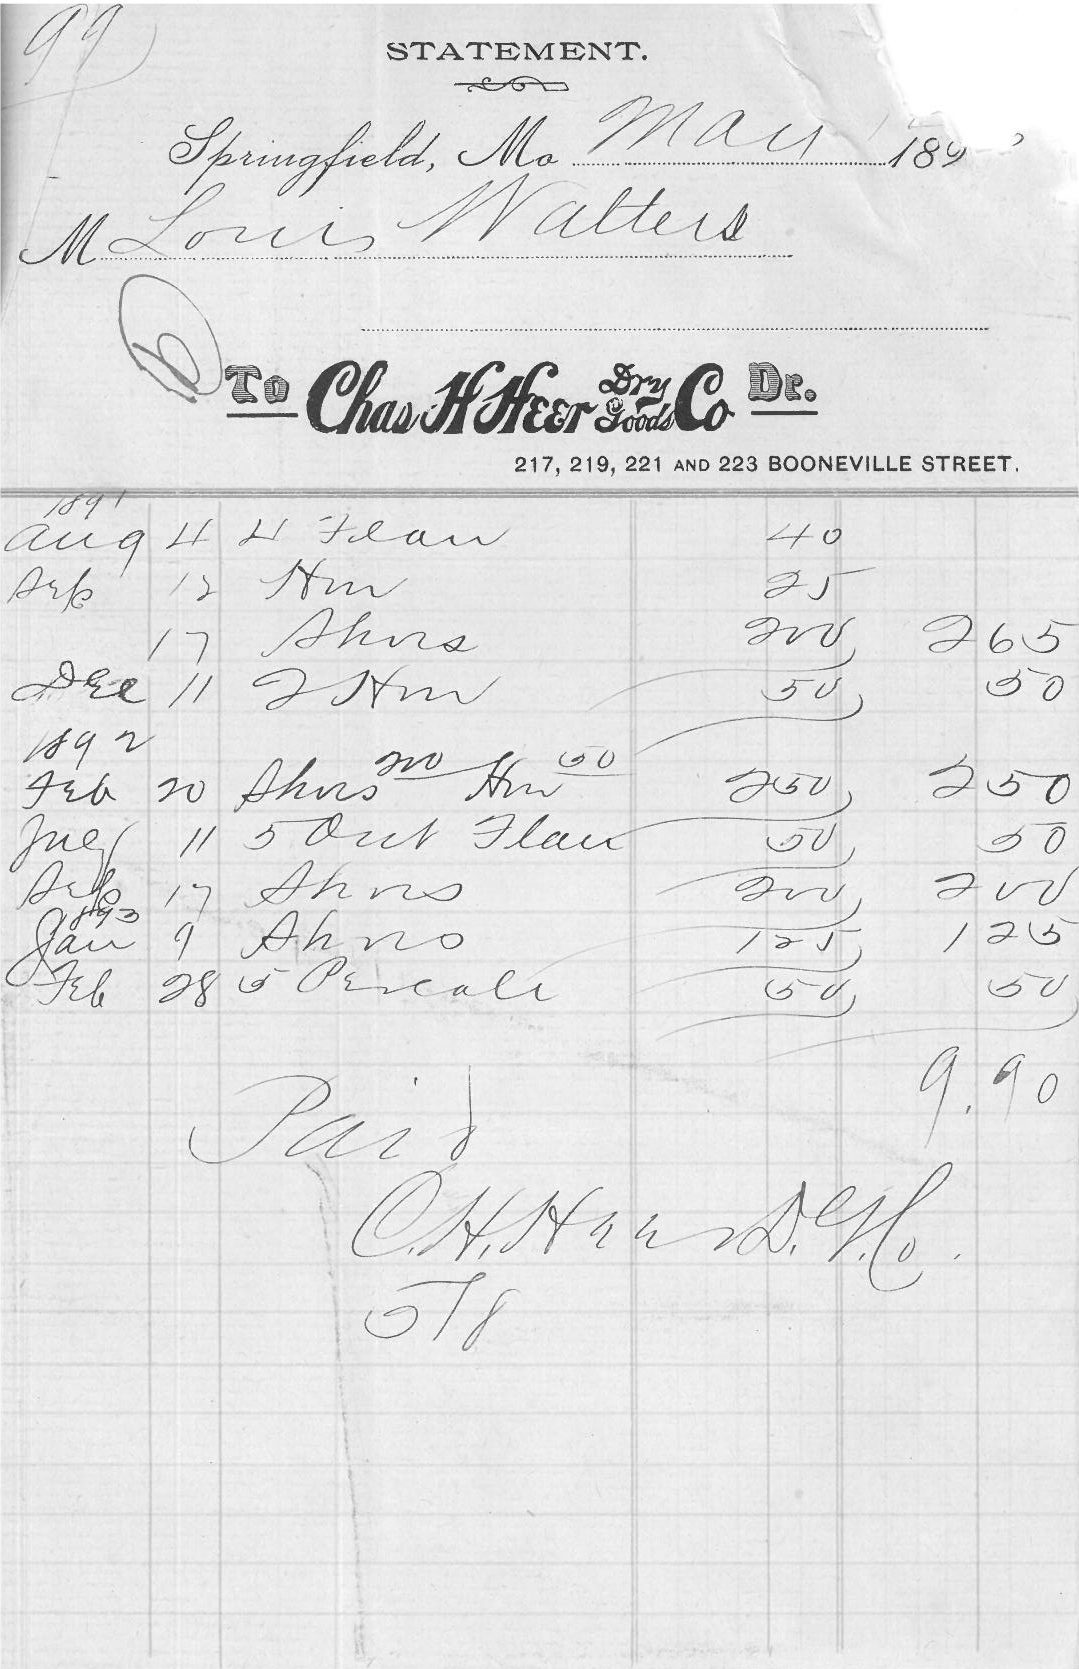 99
STATEMENT.
Springfield, Mo May 189
M Louis Walters
To Chas. H Heer Dry Goods Co Dr.
217, 219, 221 AND 223 BOONEVILLE STREET.
1891
Aug 4 4 Flan 40
Sep 12 Hse 25
17 Shoes 200 265
Dec 11 2 Hse 50 50
1892
Feb 20 Shoes 200 Hse 50 250 250
July 11 5 Out Flan 50 50
Sep 17 Shoes 200 200
1893
Jan 9 Shoes 125 125
Feb 28 5 Percale 50 50
9.90
Paid
C.H. Heer D.G. Co.